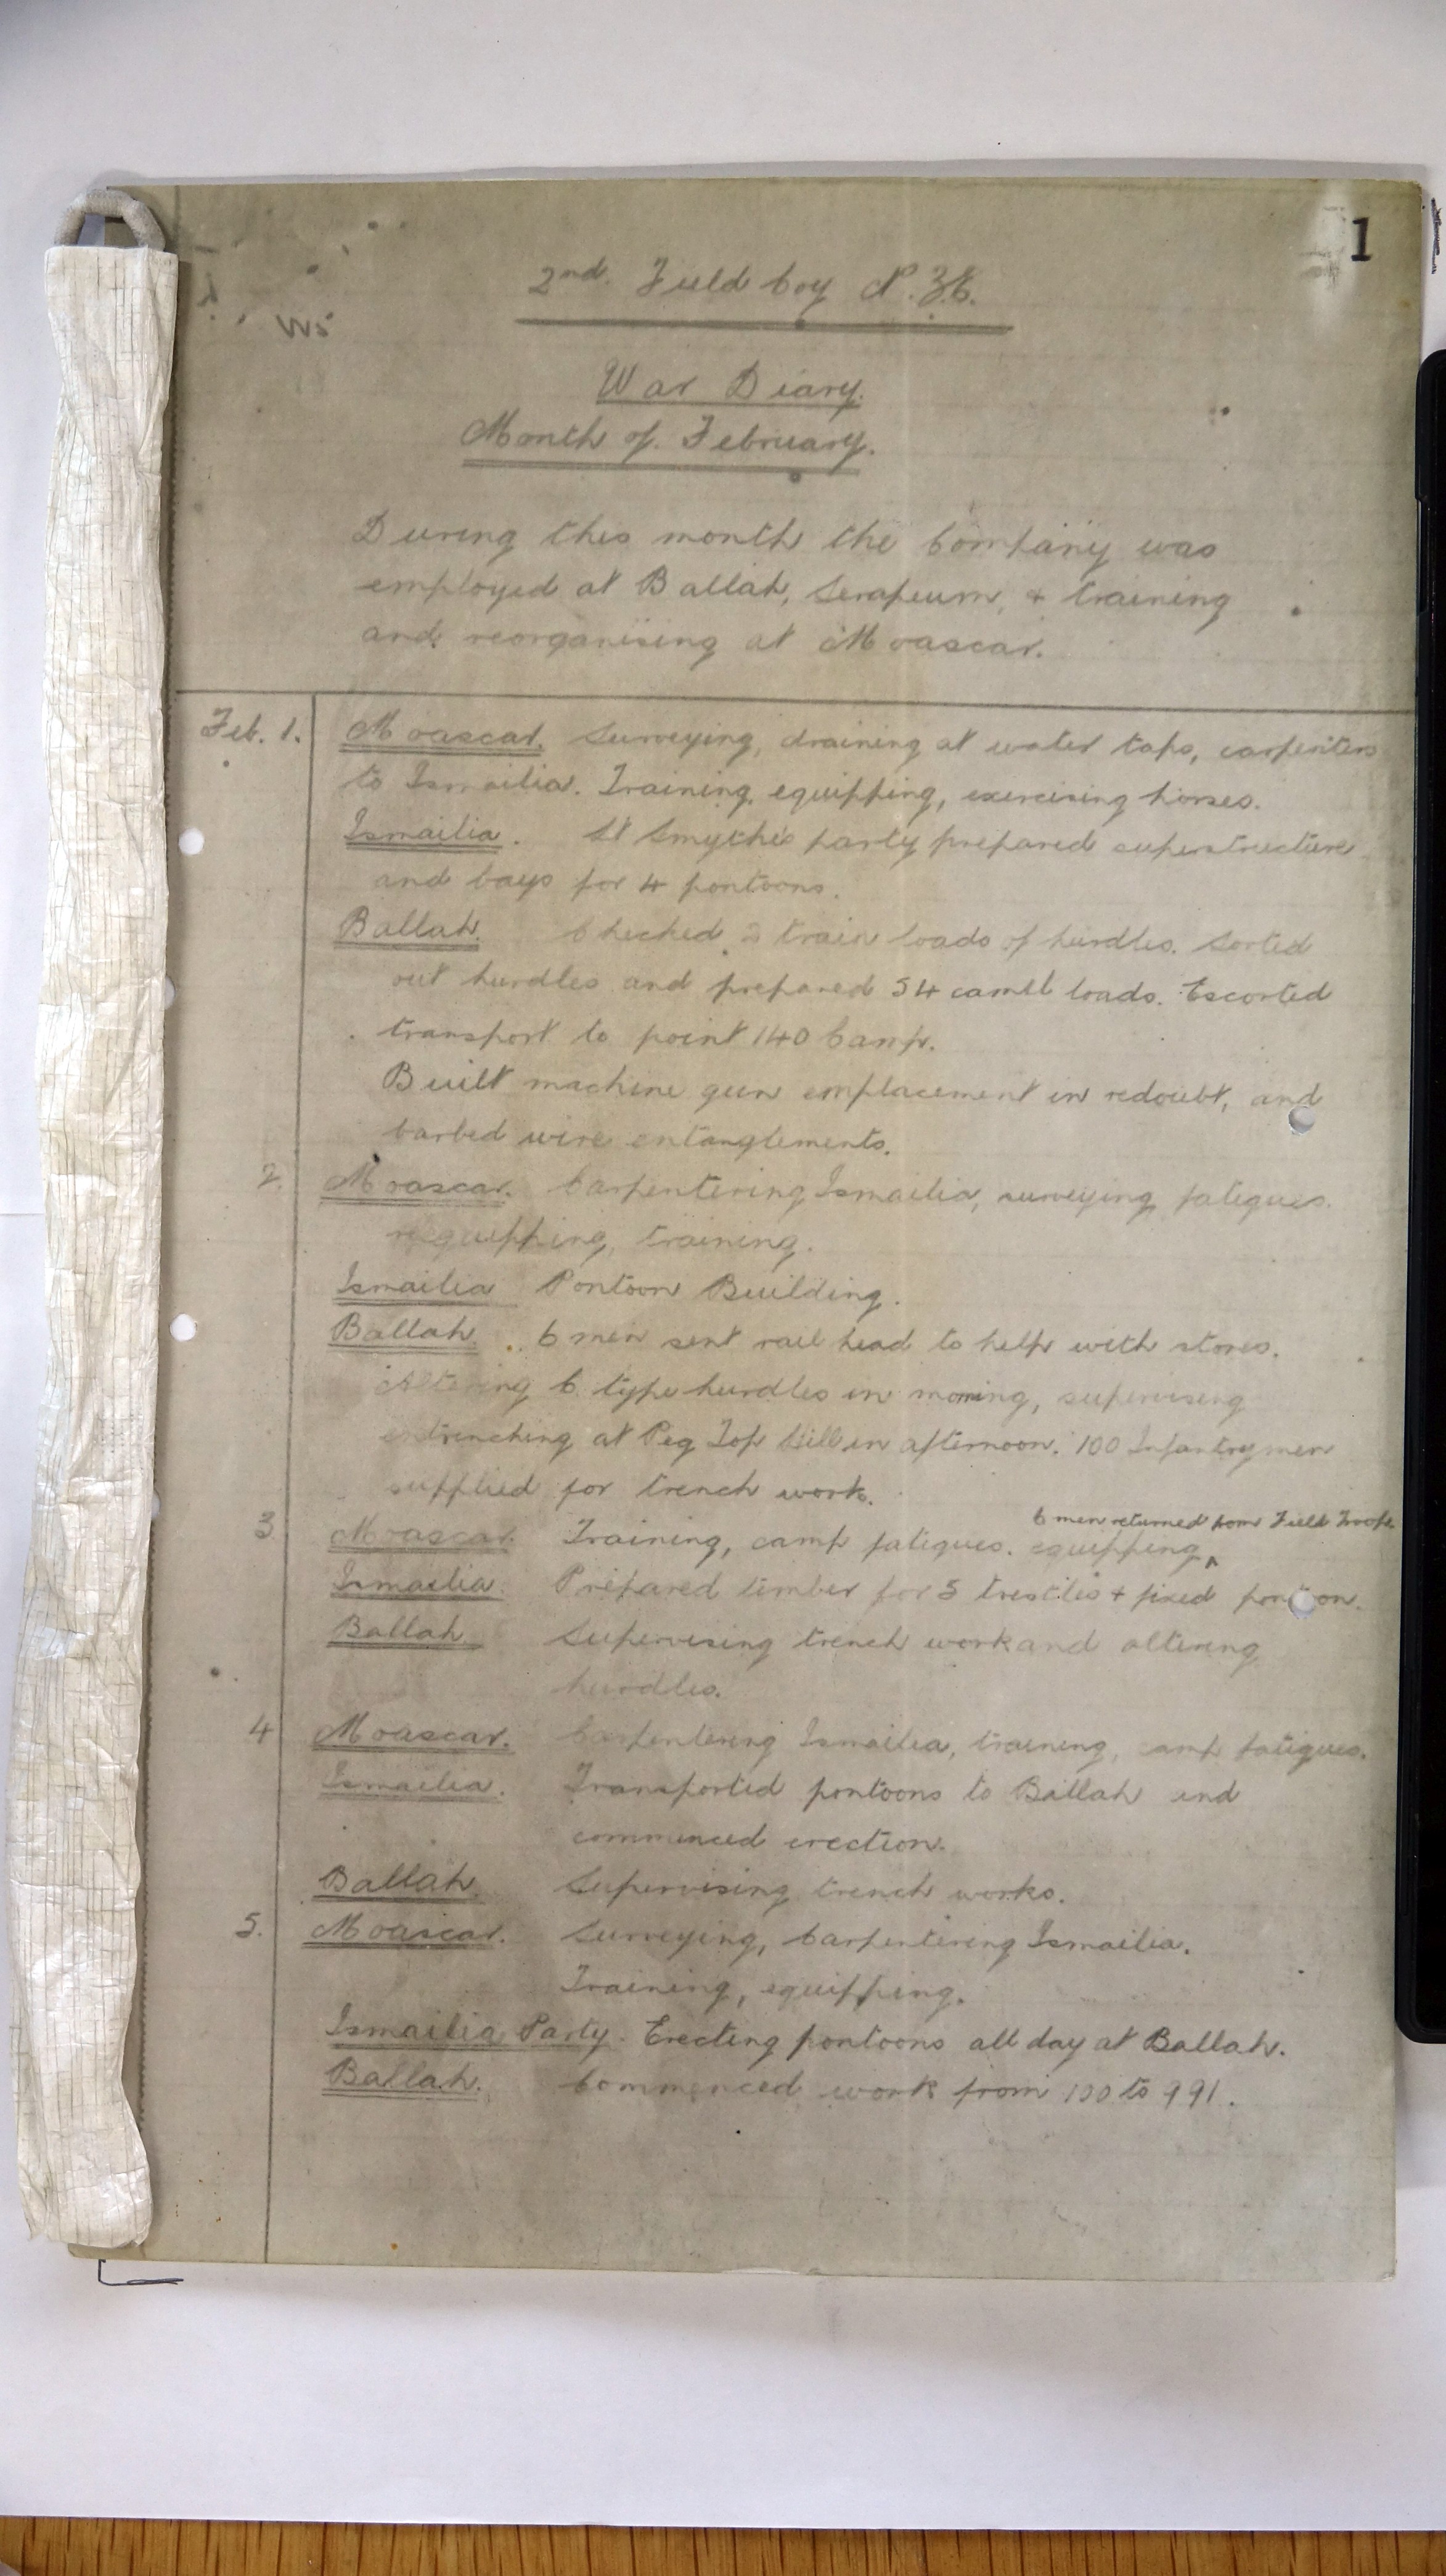 1
2nd Field Coy N.Z.E.
War Diary.
Month of February.
During this month the Company was
employed at Ballah, Serapeum, & training
and reorganising at Moascar.
Feb. 1. Moascar. Surveying, draining at water taps, carpenters
to Ismailia. Training, equipping, exercising horses.
Ismailia. Lt Smythe's party prepared superstructure
and bays for 4 pontoons.
Ballah. Checked 2 train loads of hurdles. Sorted
out hurdles and prepared 54 camel loads. Escorted
transport to point 140 Camp.
Built machine gun emplacement in redoubt, and
barbed wire entanglements.
2. Moascar. Carpentering Ismailia, surveying, fatigues.
requipping, training.
Ismailia Pontoon Building.
Ballah. 6 men sent rail head to help with stores.
Altering C type hurdles in morning, supervising
entrenching at Peg Top Hill in afternoon. 100 Infantrymen
supplied for trench work.
6 men returned from Field Troops
3 Moascar. Training, camp fatigues. equipping
Ismailia. Prepared timber for 5 trestles & fixed pontoon.
Ballah Supervising trench work and altering
hurdles.
4 Moascar. Carpentering Ismailia, training, camp fatigues.
Ismailia. Transported pontoons to Ballah and
commenced erection.
Ballah. Supervising trench works.
5. Moascar. Surveying, Carpentering Ismailia.
Training, equipping.
Ismailia Party. Erecting pontoons all day at Ballah.
Ballah. Commenced work from 100 to 991.